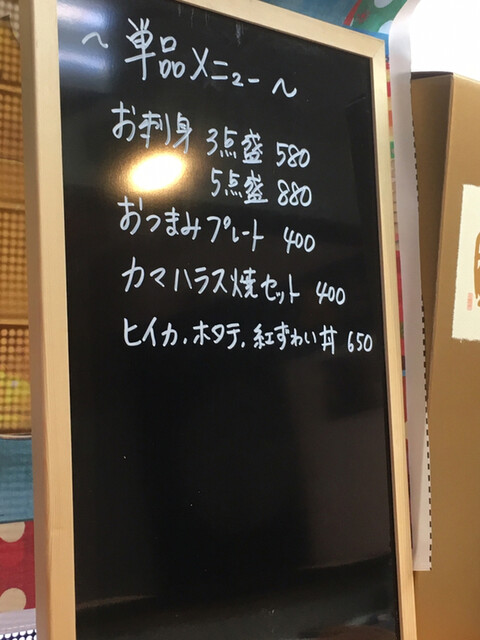 ～単品メニュー～
お刺身 3点盛 580
5点盛 880
おつまみプレート 400
カマハラス焼セット 400
ヒイカ.ホタテ.紅ずわい丼 650